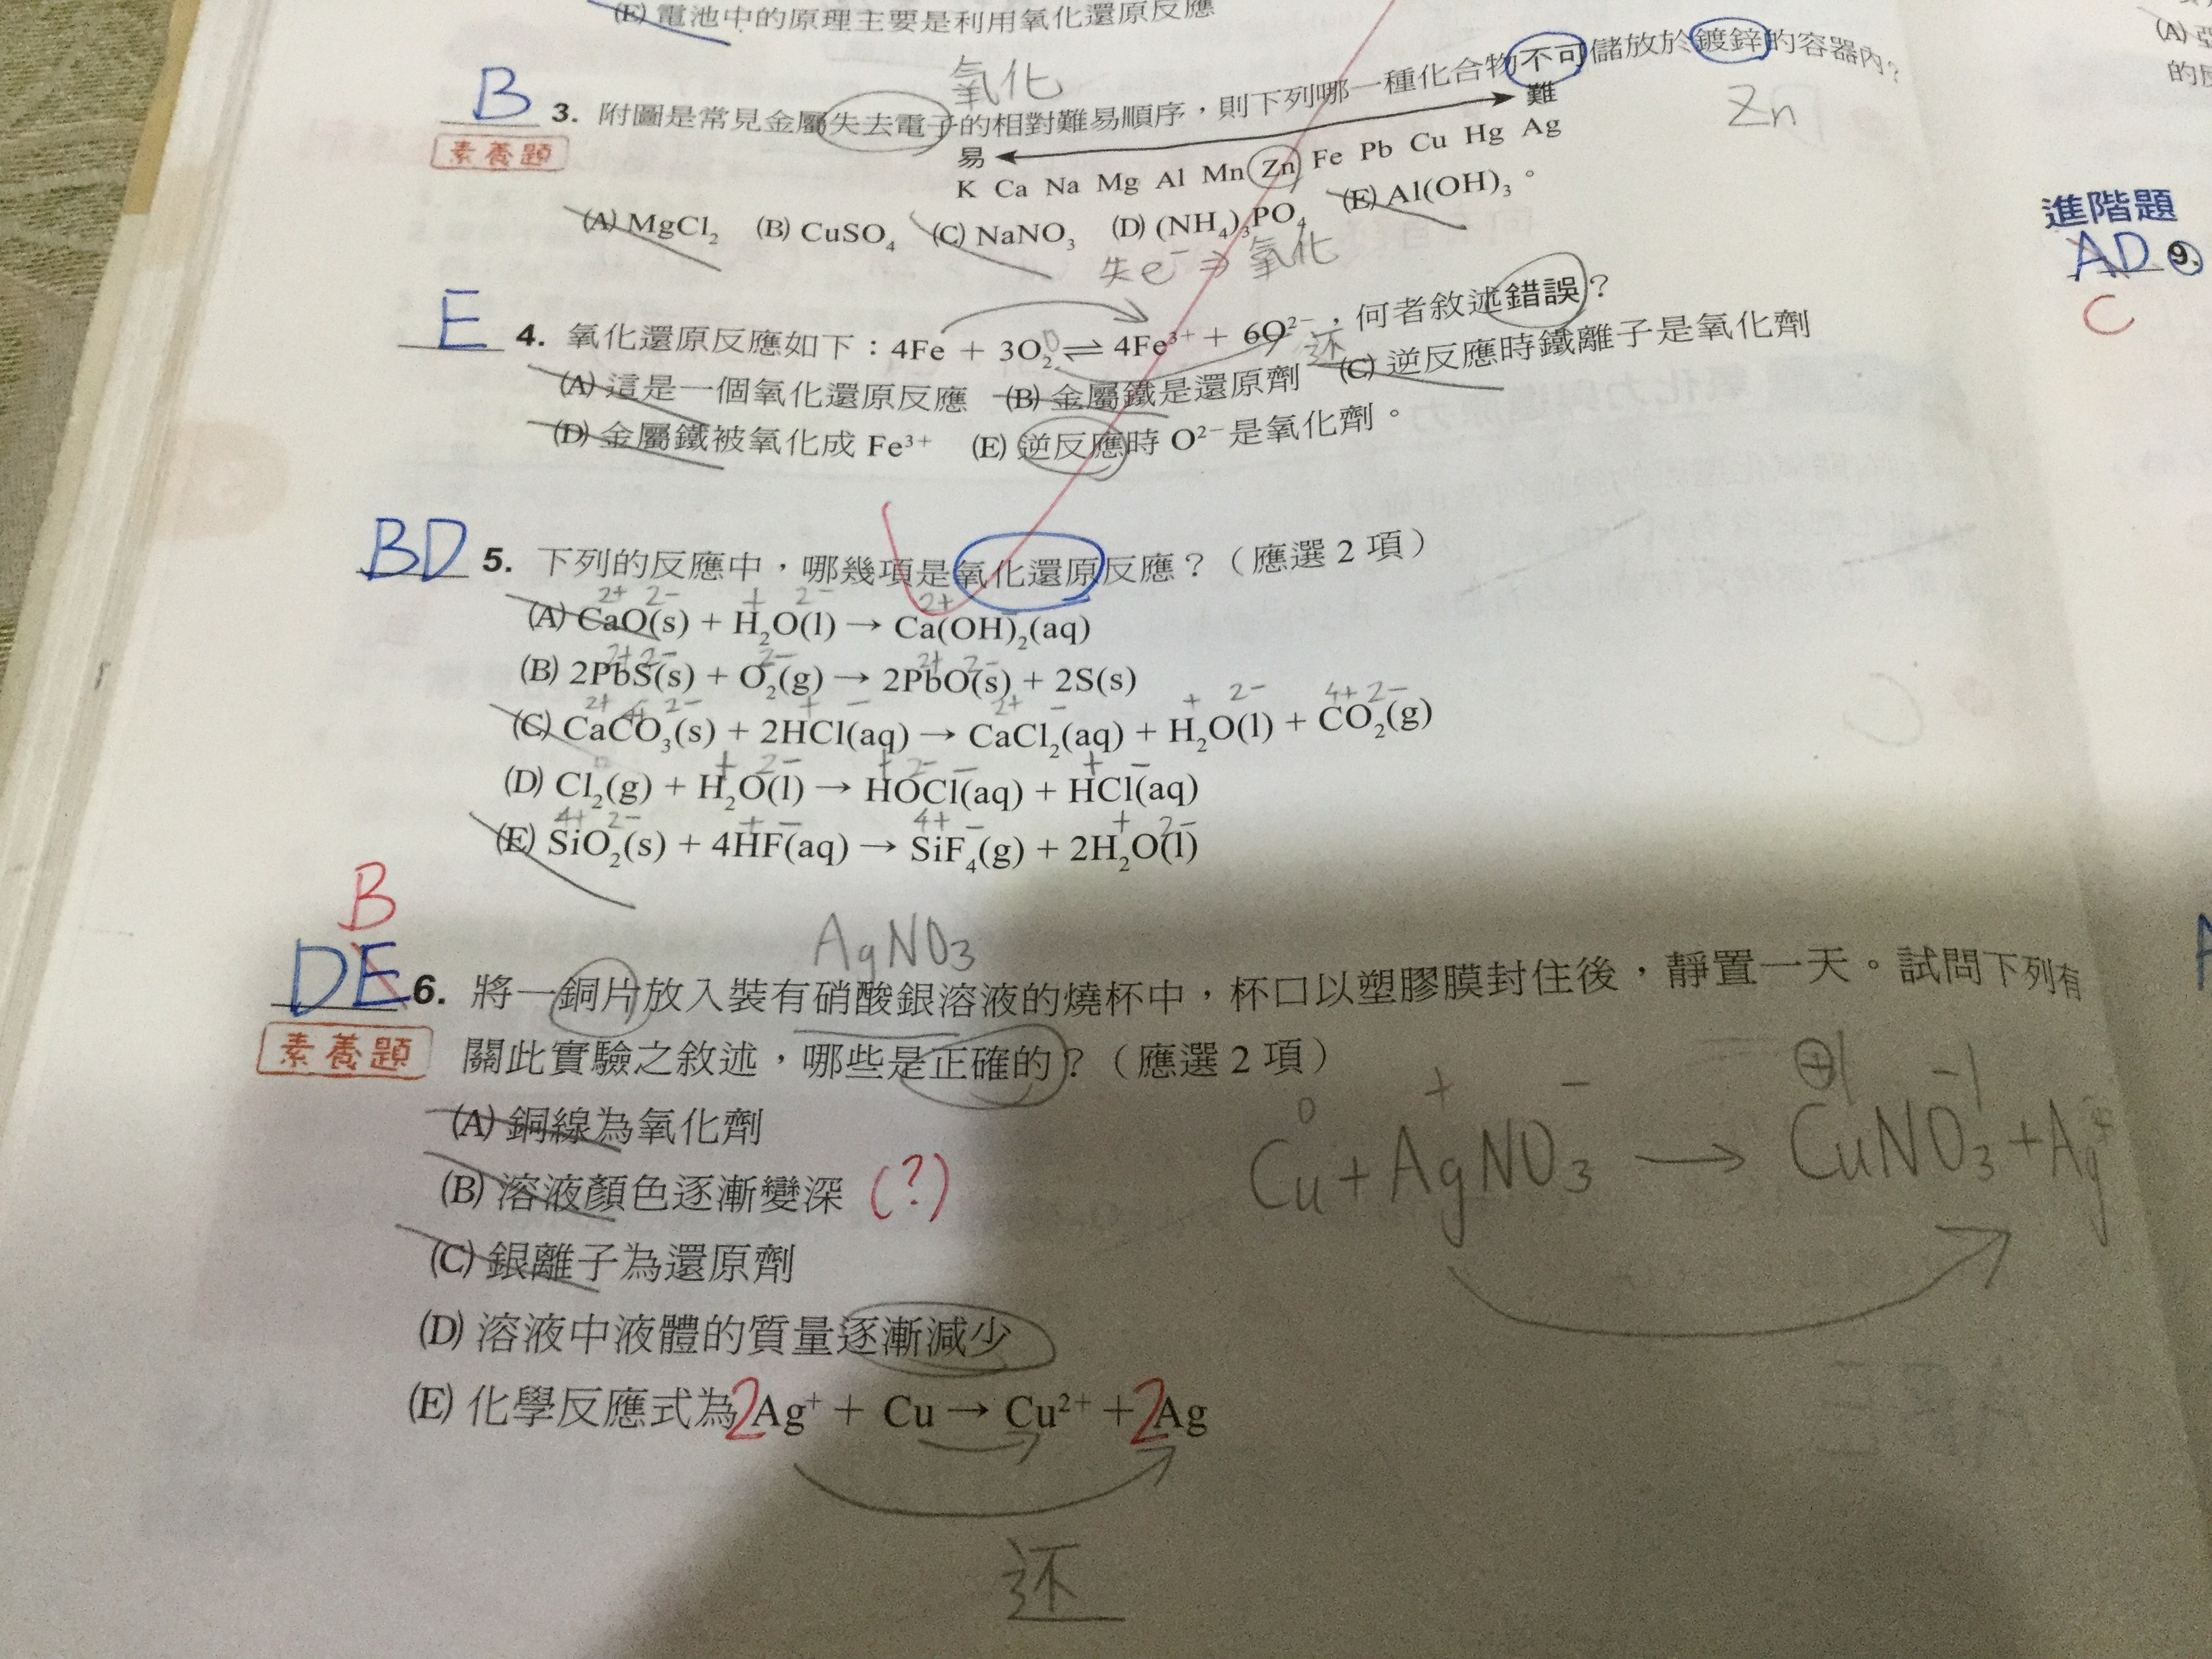 (E) 電池中的原理主要是利用氧化還原反應
氧化
B 3. 附圖是常見金屬失去電子的相對難易順序，則下列哪一種化合物不可儲放於鍍鋅的容器內？
Zn
素養題
易 難
K Ca Na Mg Al Mn Zn Fe Pb Cu Hg Ag
(A) MgCl₂ (B) CuSO₄ (C) NaNO₃ (D) (NH₄)₃PO₄ (E) Al(OH)₃。
失e⁻⇒氧化
E 4. 氧化還原反應如下：4Fe + 3O₂ ⇌ 4Fe³⁺ + 6O²⁻，何者敘述錯誤？
0
还
(A) 這是一個氧化還原反應 (B) 金屬鐵是還原劑 (C) 逆反應時鐵離子是氧化劑
(D) 金屬鐵被氧化成 Fe³⁺ (E) 逆反應時 O²⁻ 是氧化劑。
BD 5. 下列的反應中，哪幾項是氧化還原反應？（應選 2 項）
2+ 2− + 2− 2+ −
(A) CaO(s) + H₂O(l) → Ca(OH)₂(aq)
2+ 2− 2− 2+ 2−
(B) 2PbS(s) + O₂(g) → 2PbO(s) + 2S(s)
2+ 4+ 2− + − 2+ − + 2− 4+ 2−
(C) CaCO₃(s) + 2HCl(aq) → CaCl₂(aq) + H₂O(l) + CO₂(g)
+ 2− + 2− − + −
(D) Cl₂(g) + H₂O(l) → HOCl(aq) + HCl(aq)
4+ 2− + − 4+ − + 2−
(E) SiO₂(s) + 4HF(aq) → SiF₄(g) + 2H₂O(l)
B
AgNO₃
DE 6. 將一銅片放入裝有硝酸銀溶液的燒杯中，杯口以塑膠膜封住後，靜置一天。試問下列有
素養題 關此實驗之敘述，哪些是正確的？（應選 2 項）
(A) 銅線為氧化劑
(B) 溶液顏色逐漸變深 (?)
(C) 銀離子為還原劑
(D) 溶液中液體的質量逐漸減少
(E) 化學反應式為 2Ag⁺ + Cu → Cu²⁺ + 2Ag
还
0 + − +1 −1
Cu + AgNO₃ → CuNO₃ + Ag
進階題
AD 9.
C
(A)
的